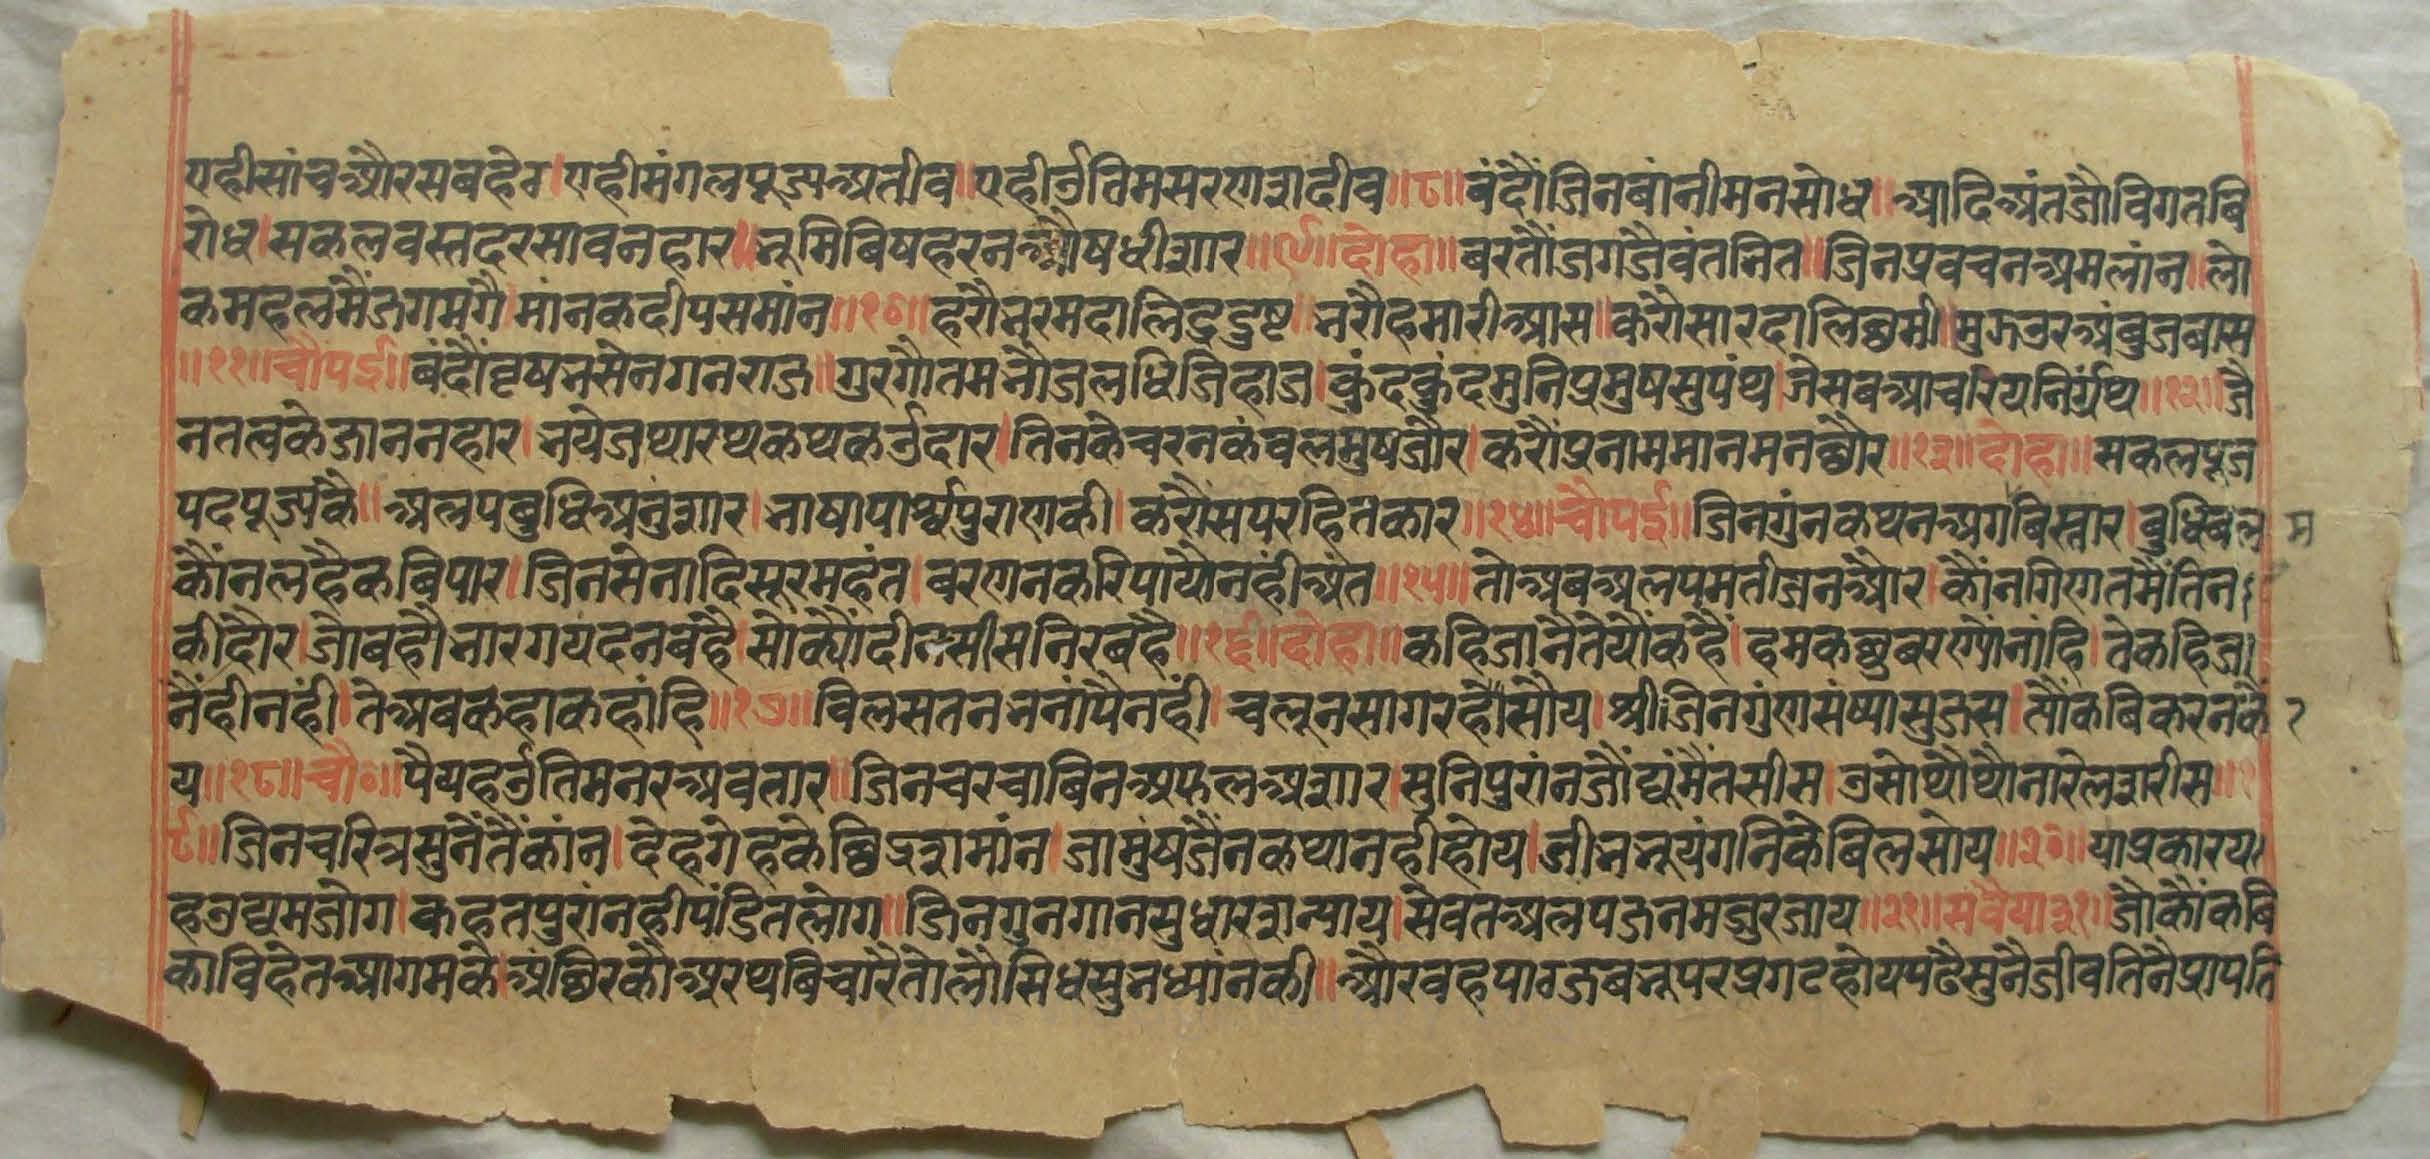 एही सांच और सब हेग। एही मंगल पूजा अतीव॥ एही उतिम सरण सदीव॥८॥ बंदौं जिनबांनी मन सोध॥ आदि अंत जौ विगत बि
रोध। सकल वस्त दरसावनहार॥ भ्रमि बिषहरन औषधी सार॥९॥ दोहा॥ बरतौं जग जैवंत नित॥ जिन प्रवचन अमलांन॥ लो
क महल मैं जगमगै। मांनक दीप समांन॥१०॥ हरौ भरम दालिद्र दुष्ट॥ भरौ हमारी आस॥ करौ सारदा लिछमी॥ मुझ उर अंबुज बास
॥११॥ चौपई॥ बंदौं वृषभसेन गनराज॥ गुर गौतम भौ जलधि जिहाज। कुंदकुंद मुनि प्रमुष सुपंथ। जे सब आचारिय निर्ग्रंथ॥१२॥ जै
न तत्व के जाननहार। भये जथारथ कथक उदार। तिनके चरन कंवल मुष जोर। करौं प्रनाम मान मन छोर॥१३॥ दोहा॥ सकल पूज
पद पूज्य कै॥ अलप बुधि अनुसार। भाषा पार्श्व पुराण की। करौं सपर हितकार॥१४॥ चौपई॥ जिनगुंन कथन अगम बिस्तार। बुधिबल
कौंन लहै कबि पार। जिनसेनादि सूर महंत। बरणन करि पायौ नहीं अंत॥१५॥ तो अब अलपमती जन और। कौंन गिणत मैं तिन
की दौर। जो बहौ भार गयंद न बहै। सो क्यौं दीन ससी निरबहै॥१६॥ दोहा॥ कहि जांनै ते यौं कहैं। हम कछु बरण्यौ नांहि। ते कहि जा
नैं ही नहीं। ते अब कहा कहांहि॥१७॥ विलसत न भनां पै नहीं। चलू न सागर हौ सोय। श्री जिनगुंण संष्या सुजस। त्यौं कबि कर न के
य॥१८॥ चौ०॥ पै यह उतिम नर अवतार॥ जिन चरचा बिन अफल असार। सुनि पुरांन जौं घुंमैं न सीस। उसो थोथौ नारेल सरीस॥१
९॥ जिन चरित्र सुनैं तैं कांन। देह गेह के छिद्र समांन। जा मुंष जैंन कथा नही होय। जीभ भूयंगनि के बिल सोय॥२०॥ या प्रकार य
ह उद्यम जोग। कहत पुरांन ही पंडित लोग॥ जिनगुन गान सुधारस न्याय। सेवत अलप जनम जुर जाय॥२१॥ सवैया ३१॥ जौ कौं कबि
कावि हेत आगम कै। अछिर कौ अरथ बिचारै तो लौ सिध सुभ ध्यांन की॥ और वह पाठ जब भू पर प्रगट होय पढै सुनै जीव तिनै प्रापति